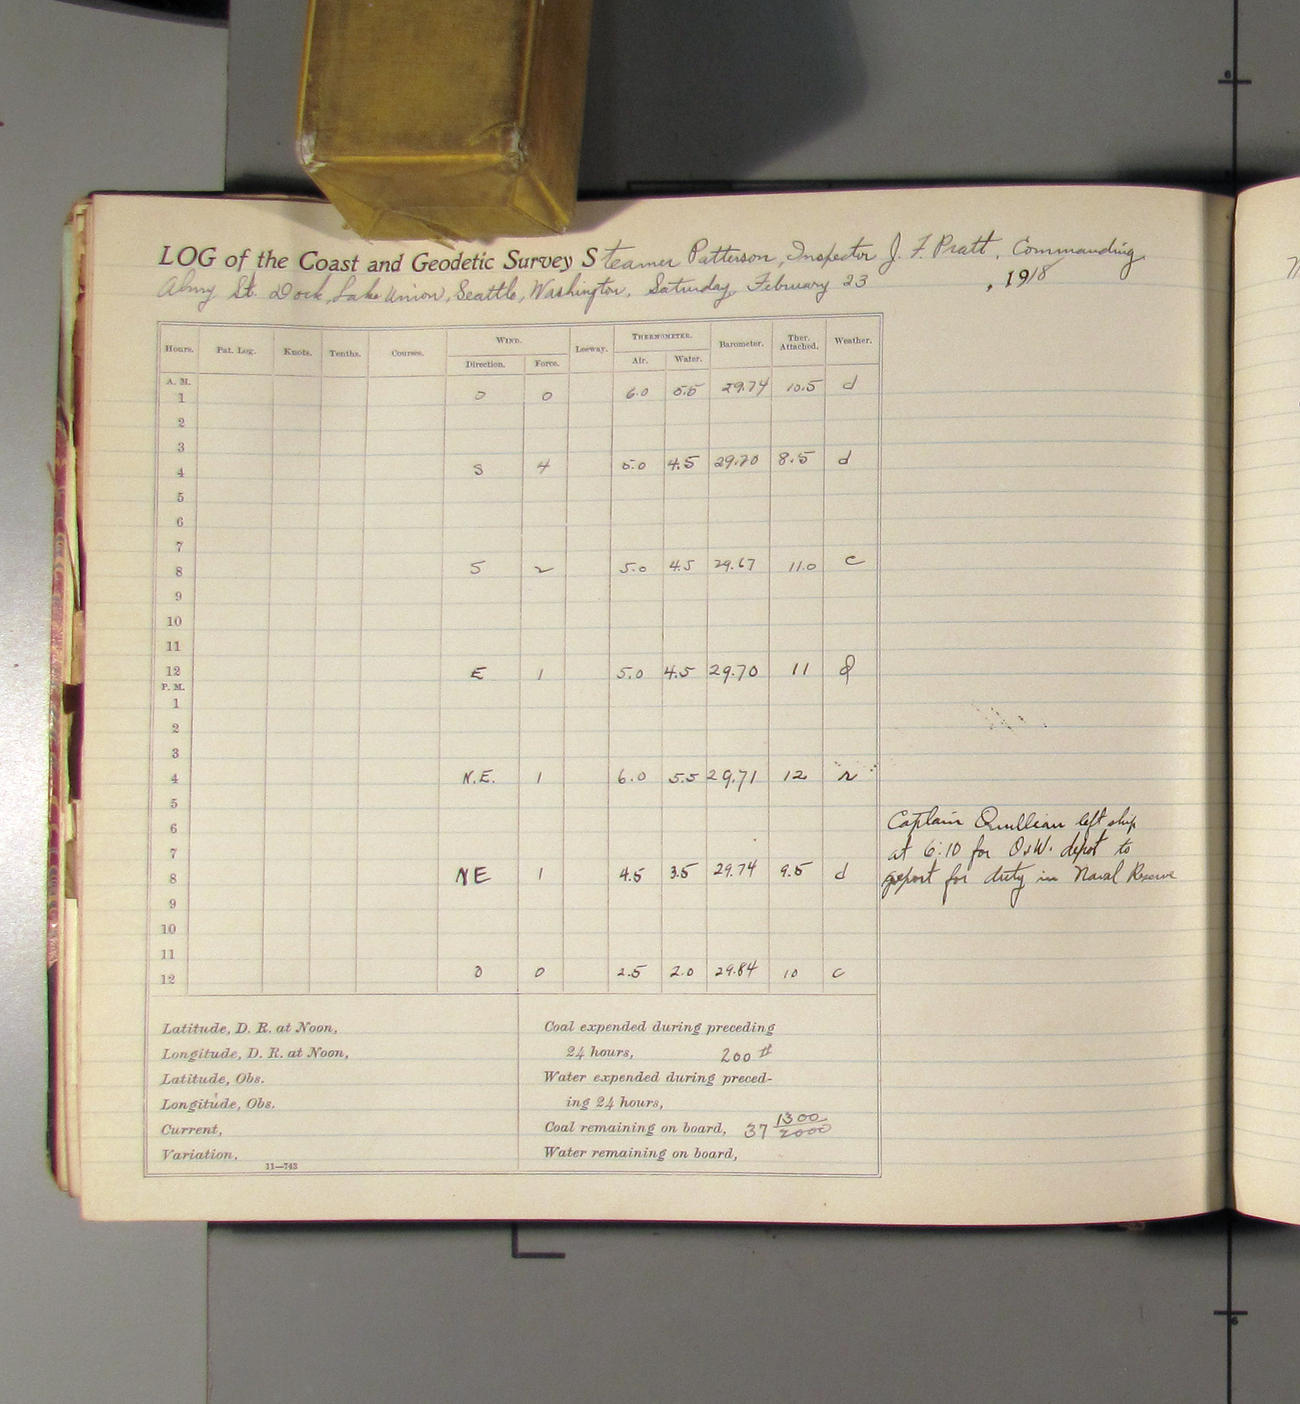 LOG of the Coast and Geodetic Survey Steamer Patterson, Inspector J. F. Pratt, Commanding
St. Dock, Lake Union, Seattle, Washington, Saturday, February 23, 1918
Hours. Pat. Log. Knots. Tenths. Courses. WIND. Direction. Force. Leeway. THERMOMETER. Air. Water. Barometer. Ther. Attached. Weather.
A. M.
1 0 0 6.0 5.5 29.74 10.5 d
2
3
4 S 4 5.0 4.5 29.70 8.5 d
5
6
7
8 S 2 5.0 4.5 29.67 11.0 c
9
10
11
12 E 1 5.0 4.5 29.70 11
P. M.
1
2
3
4 N.E. 1 6.0 5.5 29.71 12 r
5
6 Captain Quillian left ship
7 at 6:10 for O&W. depot to
8 NE 1 4.5 3.5 29.74 9.5 d report for duty in Naval Reserve
9
10
11
12 0 0 2.5 2.0 29.84 10 c
Latitude, D. R. at Noon, Coal expended during preceding
Longitude, D. R. at Noon, 24 hours, 200 #
Latitude, Obs. Water expended during preced-
Longitude, Obs. ing 24 hours,
Current, Coal remaining on board, 37 1300/2000
Variation, Water remaining on board,
11—743
6
6